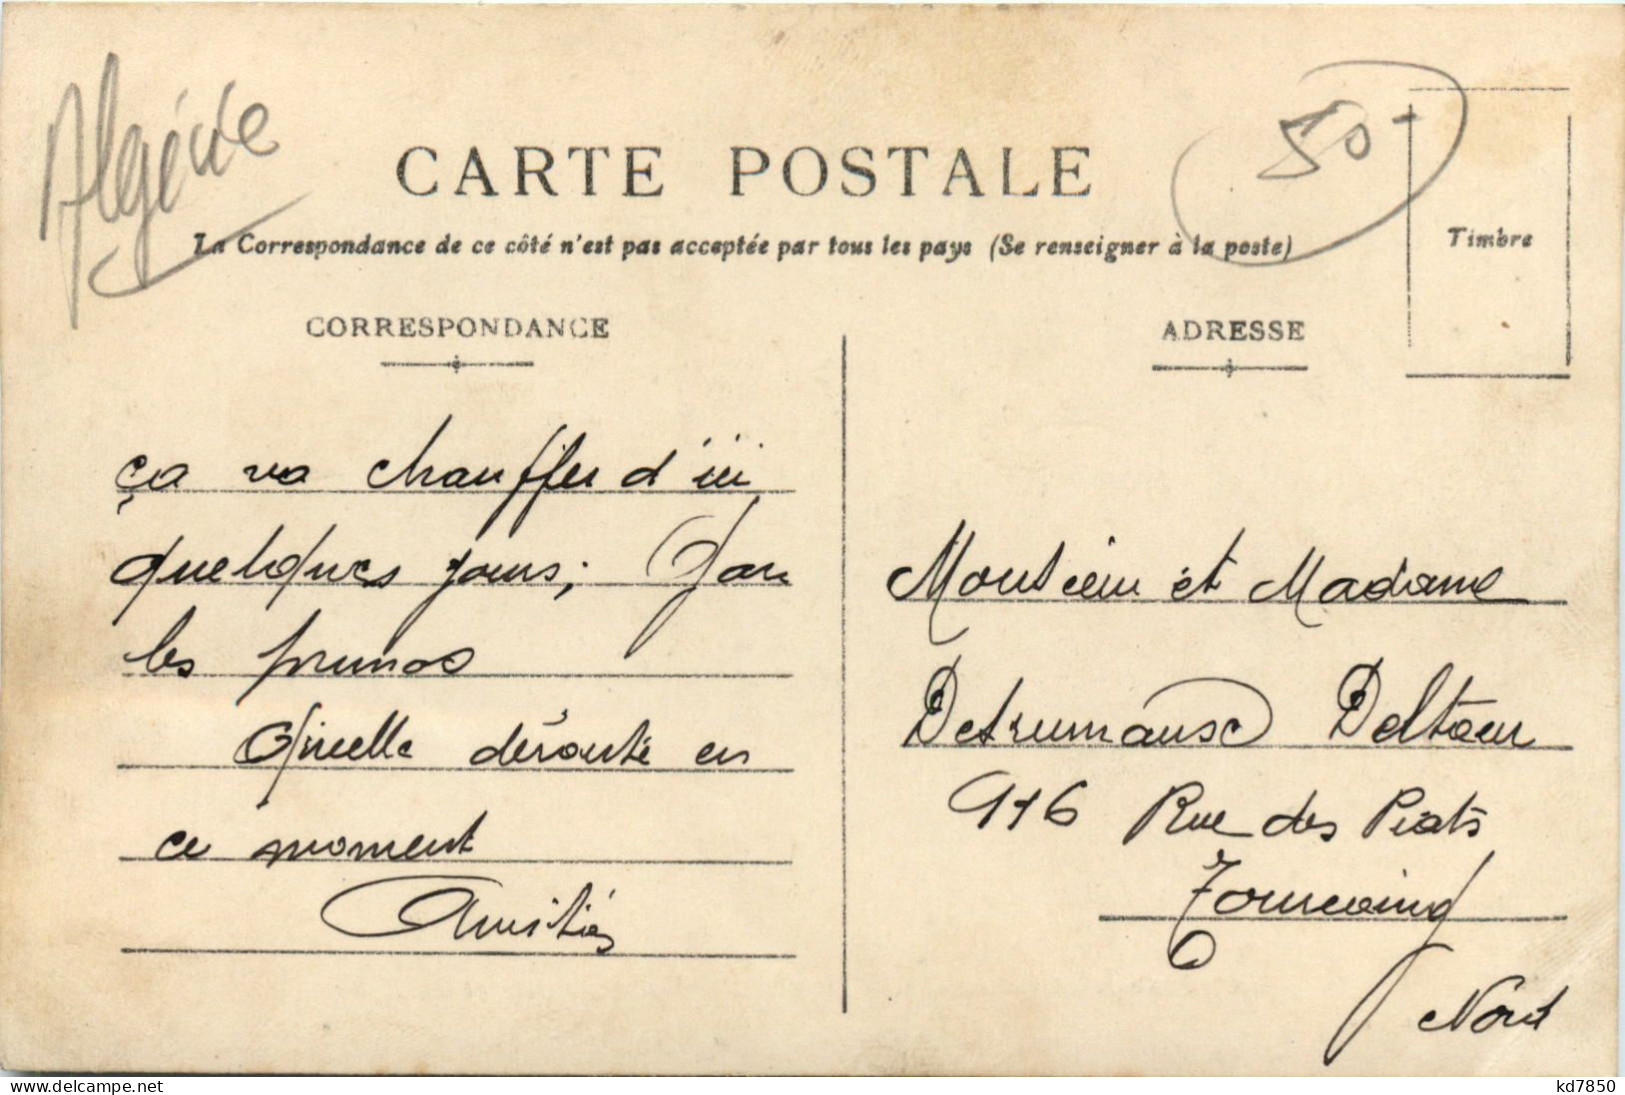 Algérie
50-
CARTE POSTALE
La Correspondance de ce côté n'est pas acceptée par tous les pays (Se renseigner à la poste)
Timbre
CORRESPONDANCE
ça va chauffer d'ici
quelques jours; Gare
les prunos
Quelle déroute en
ce moment
Amitiés
ADRESSE
Monsieur et Madame
Detrumause Deltour
916 Rue des Piats
Tourcoing
Nord
delcampe.net
kd7850